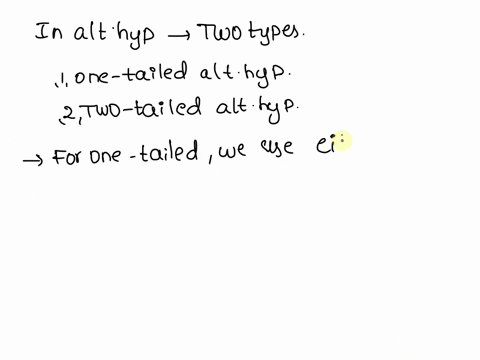 In alt.hyp → Two types.
1, one-tailed alt.hyp.
2, Two-tailed alt.hyp.
→ For one-tailed, we use ei